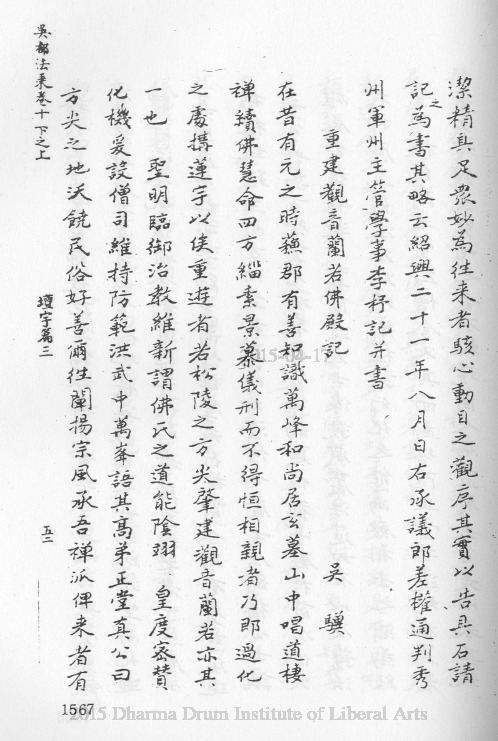 潔精具足眾妙為往来者駭心動目之觀序其實以告具石請
記之為書其略云紹興二十一年八月日右承議郎差權通判秀
州軍州主管學事李杼記并書
重建觀音蘭若佛殿記
吳驥
在昔有元之時蘓郡有善知識萬峰和尚居玄墓山中唱道棲
禅續佛慧命四方緇素景慕儀刑而不得恒相親者乃即過化
之處搆蓮宇以俟重遊者若松陵之方尖肇建觀音蘭若亦其
一也　聖明臨御治教維新謂佛氏之道能陰翊　皇度宻賛
化機爰設僧司維持防範洪武中萬峯語其髙弟正堂真公曰
方尖之地沃饒民俗好善爾徃闡揚宗風承吾禅派俾来者有
吳都法乘卷十下之上
壇宇篇三
五二
1567
2015 Dharma Drum Institute of Liberal Arts